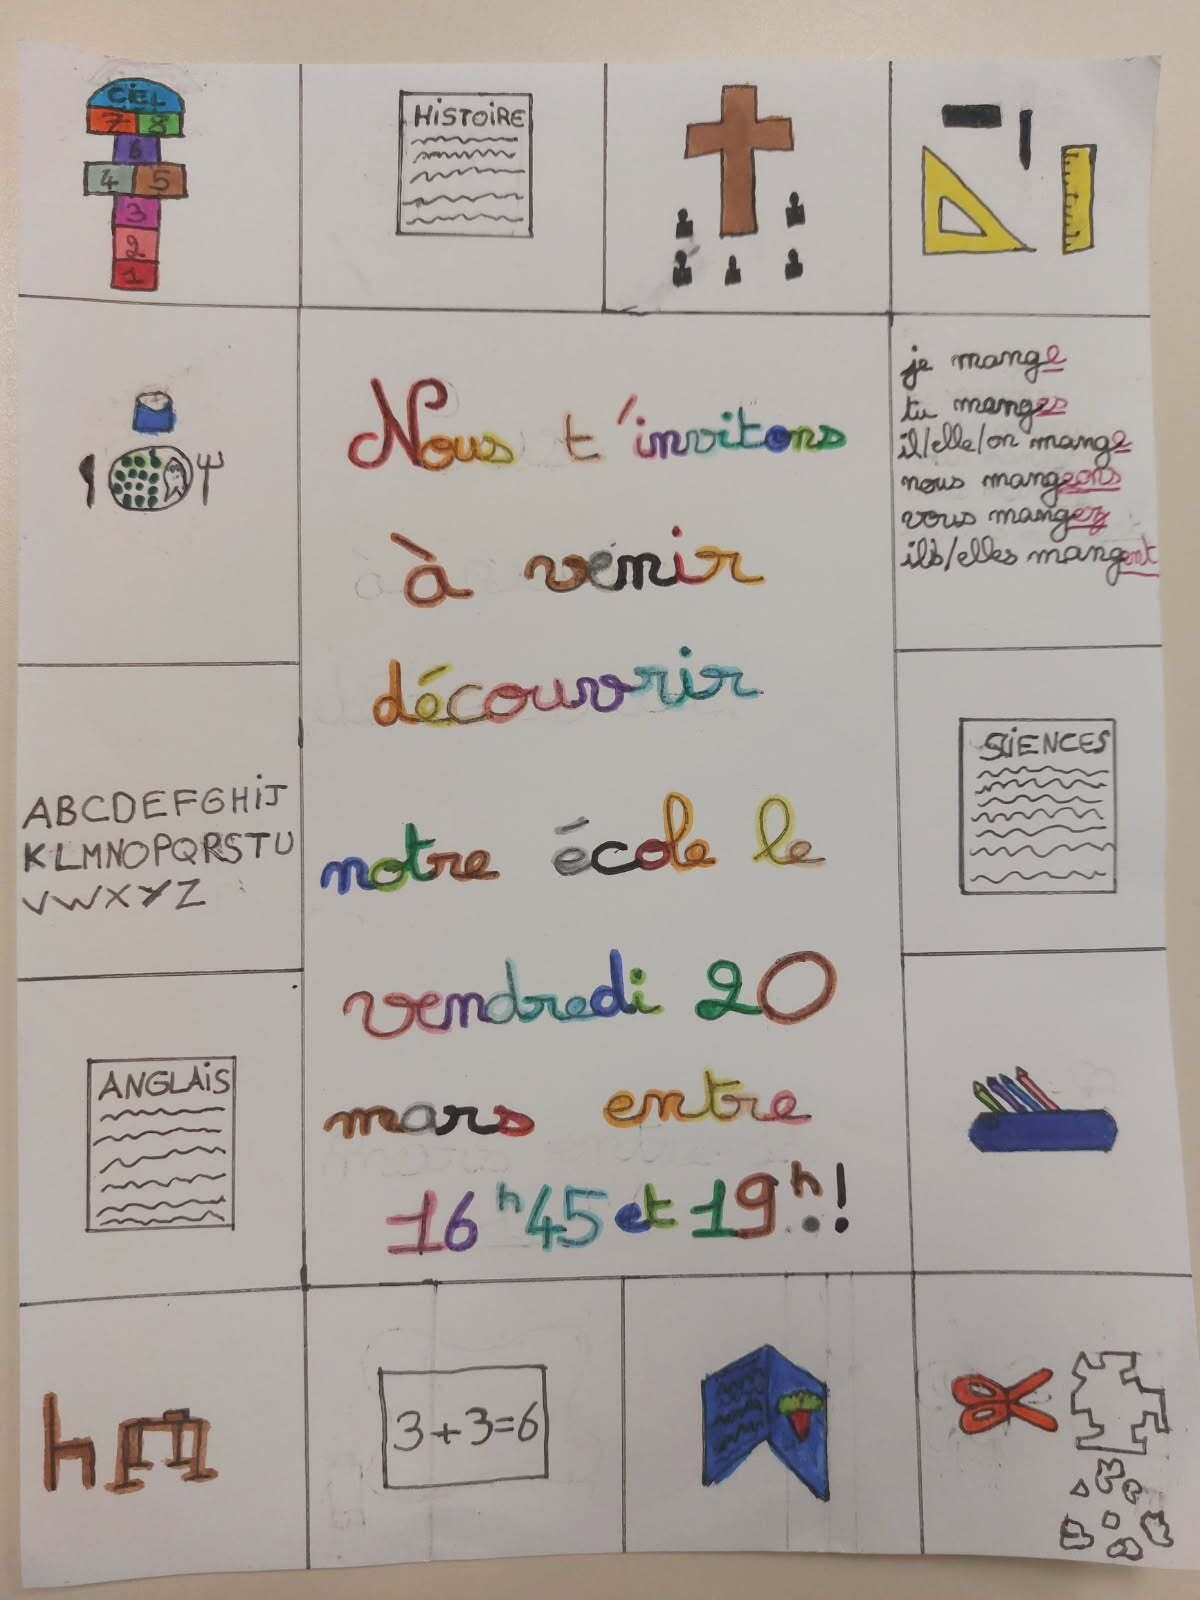 CIEL
7 8
6
4 5
3
2
1
HISTOIRE
je mange
tu manges
il/elle/on mange
nous mangeons
vous mangez
ils/elles mangent
Nous t'invitons
à venir
découvrir
notre école le
vendredi 20
mars entre
16h45 et 19h!
ABCDEFGHIJ
KLMNOPQRSTU
VWXYZ
SCIENCES
ANGLAIS
3+3=6